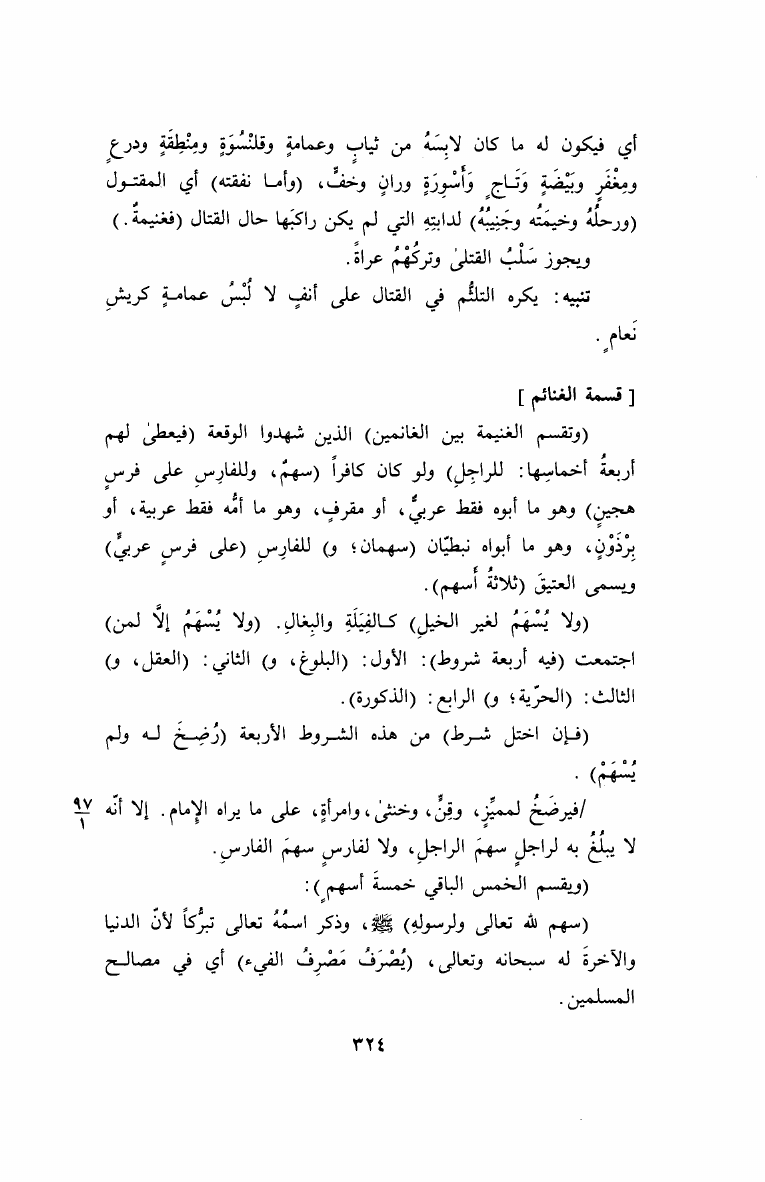 أي فيكون له ما كان لابِسَهُ من ثيابٍ وعمامةٍ وقلنْسُوَةٍ ومِنْطِقَةٍ ودرعٍ
ومِغْفَرٍ وبَيْضَةٍ وَتَـاجٍ وَأَسْوِرَةٍ ورانٍ وخفٍّ، (وأمـا نفقته) أي المقتـول
(ورحلُهُ وخيمَتُه وجَنِيبُهُ) لدابتهِ التي لم يكن راكبَها حال القتال (فغنيمةٌ.)
ويجوز سَلْبُ القتلىٰ وتركُهُمْ عراةً.
تنبيه: يكره التلثُّم في القتال على أنفٍ لا لُبْسُ عمامـةٍ كريشِ
نَعامٍ.
[ قسمة الغنائم ]
(وتقسم الغنيمة بين الغانمين) الذين شهدوا الوقعة (فيعطىٰ لهم
أربعةُ أخماسِها: للراجِلِ) ولو كان كافراً (سهمٌ، وللفارِسِ على فرسٍ
هجينٍ) وهو ما أبوه فقط عربيٌّ، أو مقرفٍ، وهو ما أمُّه فقط عربية، أو
بِرْذَوْنٍ، وهو ما أبواه نبطيّان (سهمان؛ و) للفارِسِ (على فرسٍ عربيٍّ)
ويسمى العتيقَ (ثلاثةُ أسهم).
(ولا يُسْهَمُ لغير الخيلِ) كـالفِيَلَةِ والبِغالِ. (ولا يُسْهَمُ إلاَّ لمن)
اجتمعت (فيه أربعة شروط): الأول: (البلوغ، و) الثاني: (العقل، و)
الثالث: (الحرّية؛ و) الرابع: (الذكورة).
(فـإن اختل شـرط) من هذه الشـروط الأربعة (رُضِـخَ لـه ولم
يُسْهَمْ).
/فيرضَخُ لمميِّزٍ، وقِنٍّ، وخنثىٰ، وامرأةٍ، على ما يراه الإمام. إلا أنّه ٩٧/١
لا يبلُغُ به لراجلٍ سهمَ الراجلِ، ولا لفارسٍ سهمَ الفارسِ.
(ويقسم الخمس الباقي خمسةَ أسهمٍ):
(سهم لله تعالى ولرسولهِ) ﷺ، وذكر اسمُهُ تعالى تبرُّكاً لأنّ الدنيا
والآخرةَ له سبحانه وتعالى، (يُصْرَفُ مَصْرِفُ الفيء) أي في مصالـح
المسلمين.
٣٢٤